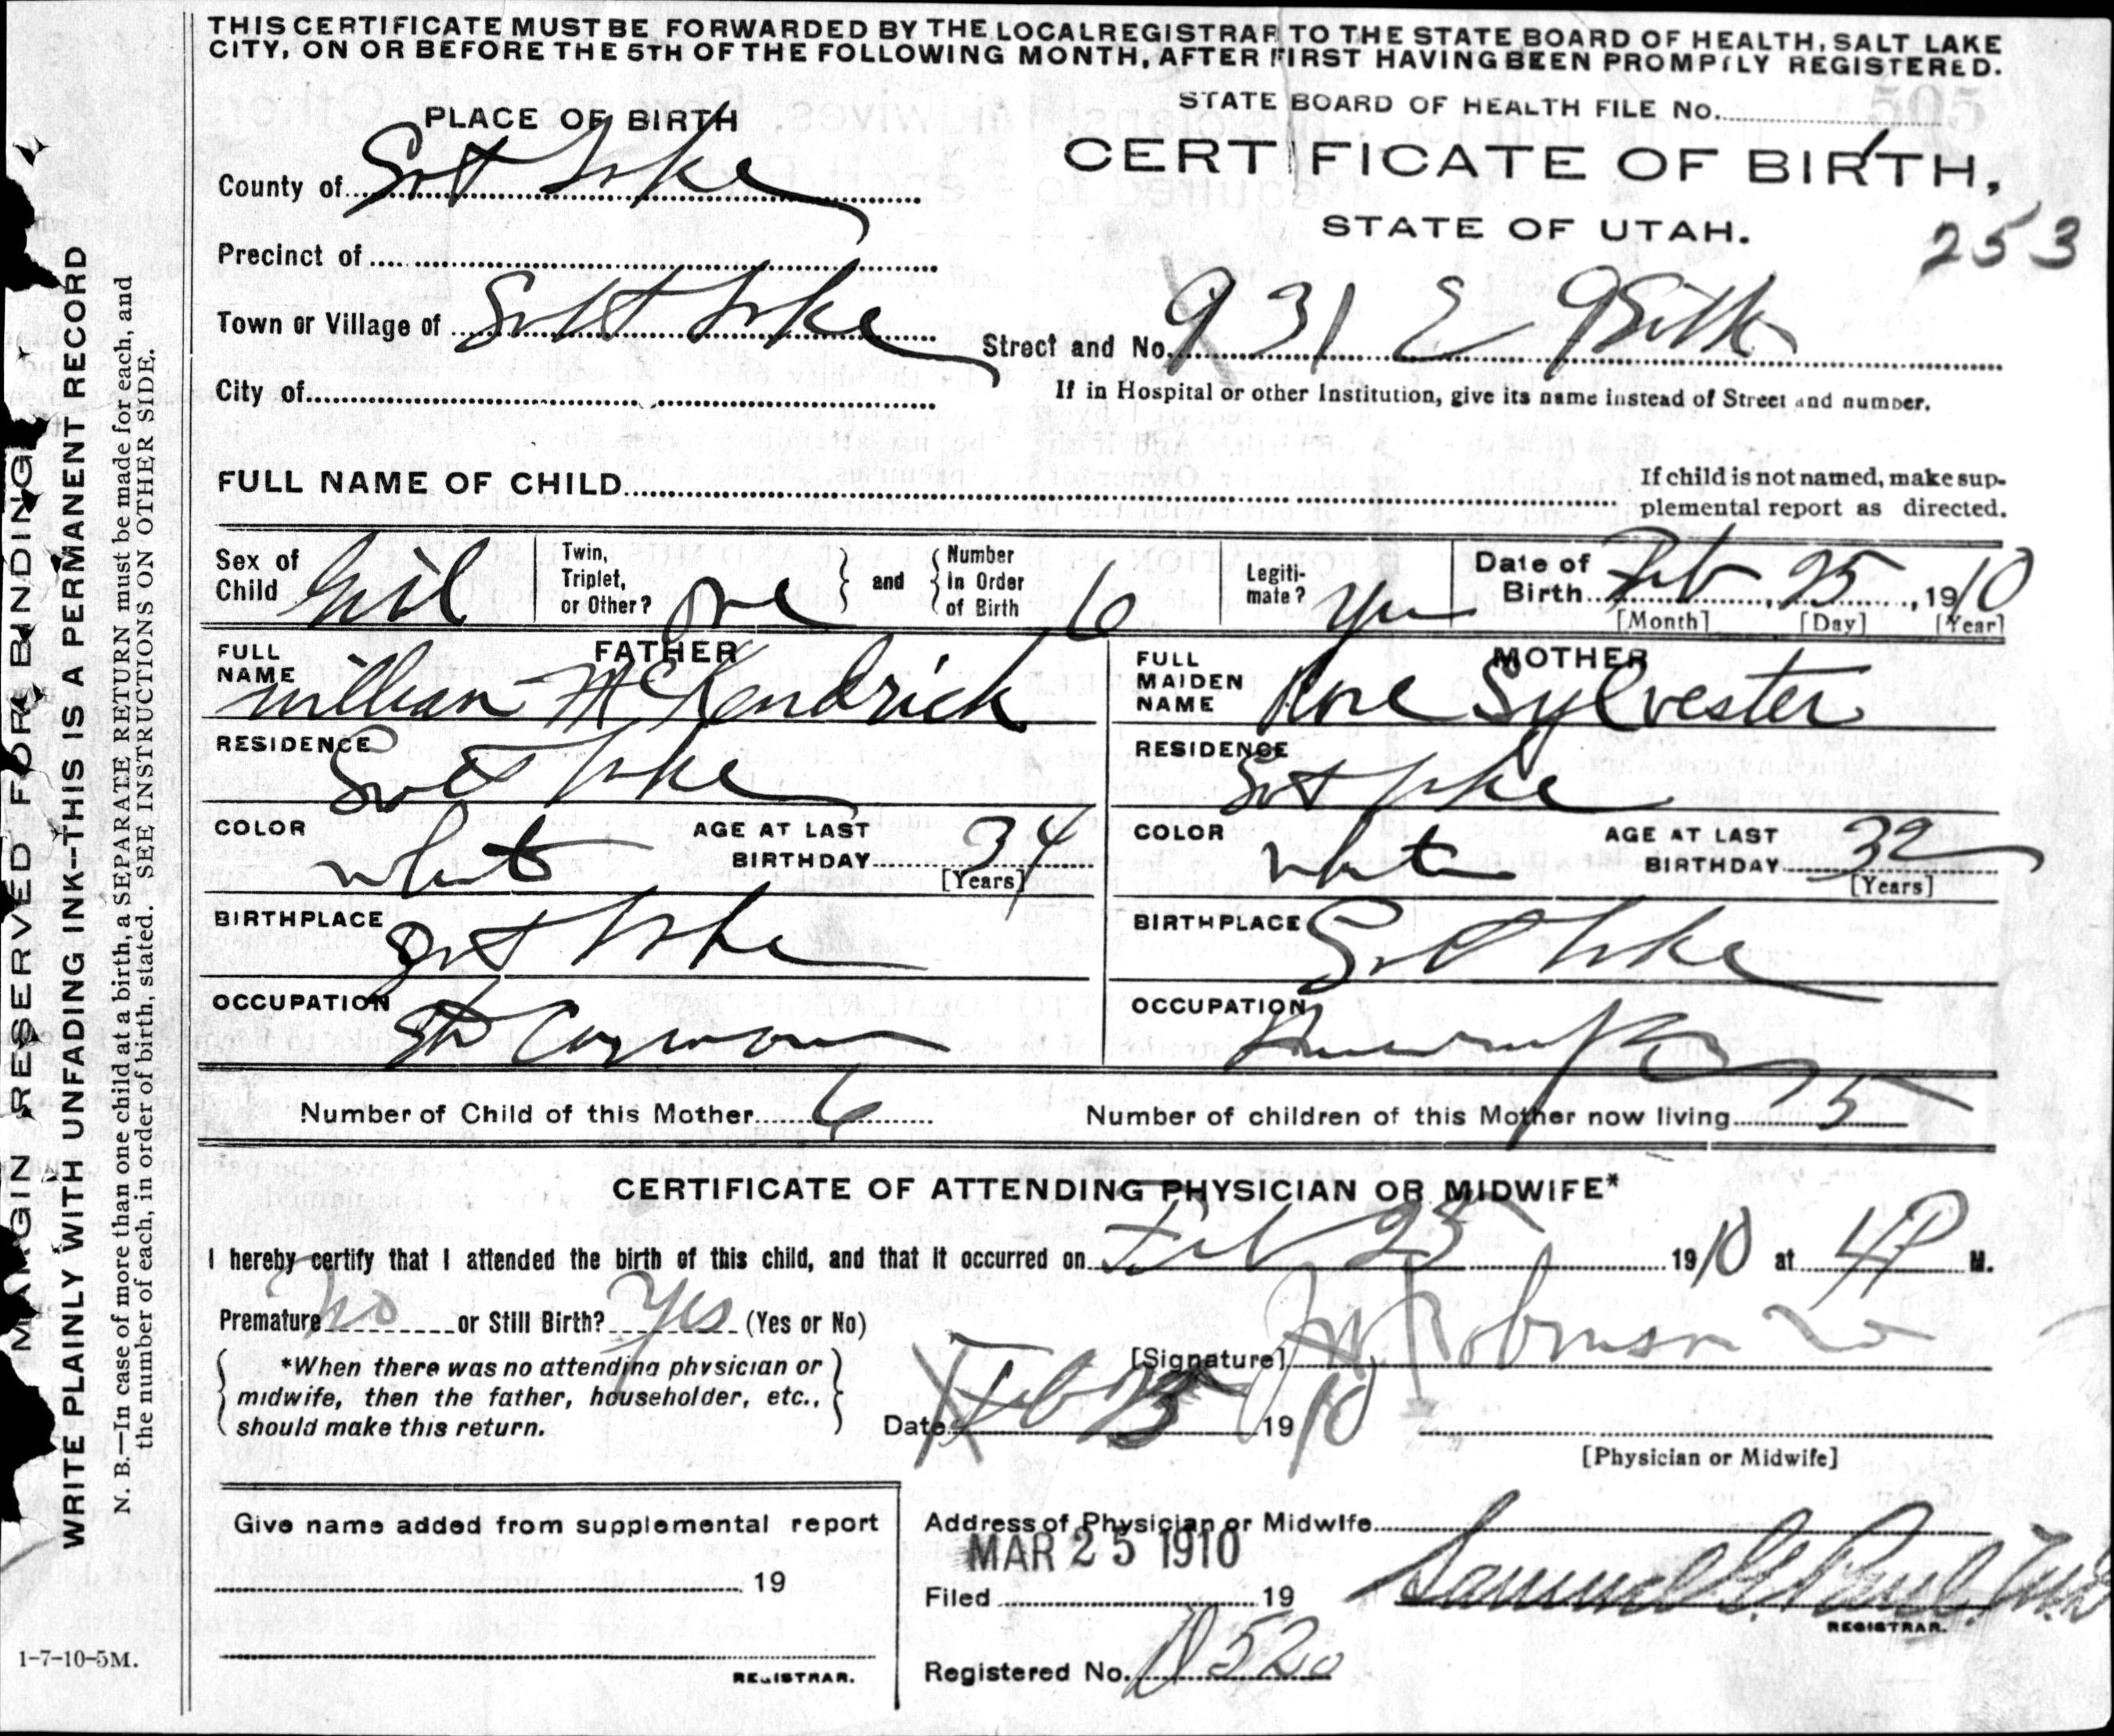 THIS CERTIFICATE MUST BE FORWARDED BY THE LOCAL REGISTRAR TO THE STATE BOARD OF HEALTH, SALT LAKE
CITY, ON OR BEFORE THE 5TH OF THE FOLLOWING MONTH, AFTER FIRST HAVING BEEN PROMPTLY REGISTERED.
STATE BOARD OF HEALTH FILE No.
PLACE OF BIRTH
CERTIFICATE OF BIRTH,
County of Salt Lake
STATE OF UTAH.
253
Precinct of
Town or Village of Salt Lake
Street and No. 931 E
City of
If in Hospital or other Institution, give its name instead of Street and number.
FULL NAME OF CHILD
If child is not named, make sup-
plemental report as directed.
Sex of Child Girl
Twin, Triplet, or Other? one
and
Number in Order of Birth 6
Legiti-mate? Yes
Date of Birth Feb 25, 1910
[Month] [Day] [Year]
FATHER
FULL NAME William McKendrick
MOTHER
FULL MAIDEN NAME Rose Sylvester
RESIDENCE Salt Lake
RESIDENCE Salt Lake
COLOR white AGE AT LAST BIRTHDAY 34 [Years]
COLOR white AGE AT LAST BIRTHDAY 32 [Years]
BIRTHPLACE Salt Lake
BIRTHPLACE Salt Lake
OCCUPATION
OCCUPATION
Number of Child of this Mother 6
Number of children of this Mother now living 5
CERTIFICATE OF ATTENDING PHYSICIAN OR MIDWIFE*
I hereby certify that I attended the birth of this child, and that it occurred on Feb 25 1910 at 4 P M.
Premature No or Still Birth? Yes (Yes or No)
[Signature] Robinson
*When there was no attending physician or
midwife, then the father, householder, etc.,
should make this return.
Date Feb 25 1910
[Physician or Midwife]
Give name added from supplemental report
19
REGISTRAR.
Address of Physician or Midwife
MAR 25 1910
Filed 19
Samuel G. Paul
REGISTRAR.
Registered No. 520
MARGIN RESERVED FOR BINDING
WRITE PLAINLY WITH UNFADING INK--THIS IS A PERMANENT RECORD
N. B.—In case of more than one child at a birth, a SEPARATE RETURN must be made for each, and
the number of each, in order of birth, stated. SEE INSTRUCTIONS ON OTHER SIDE.
1-7-10-5M.